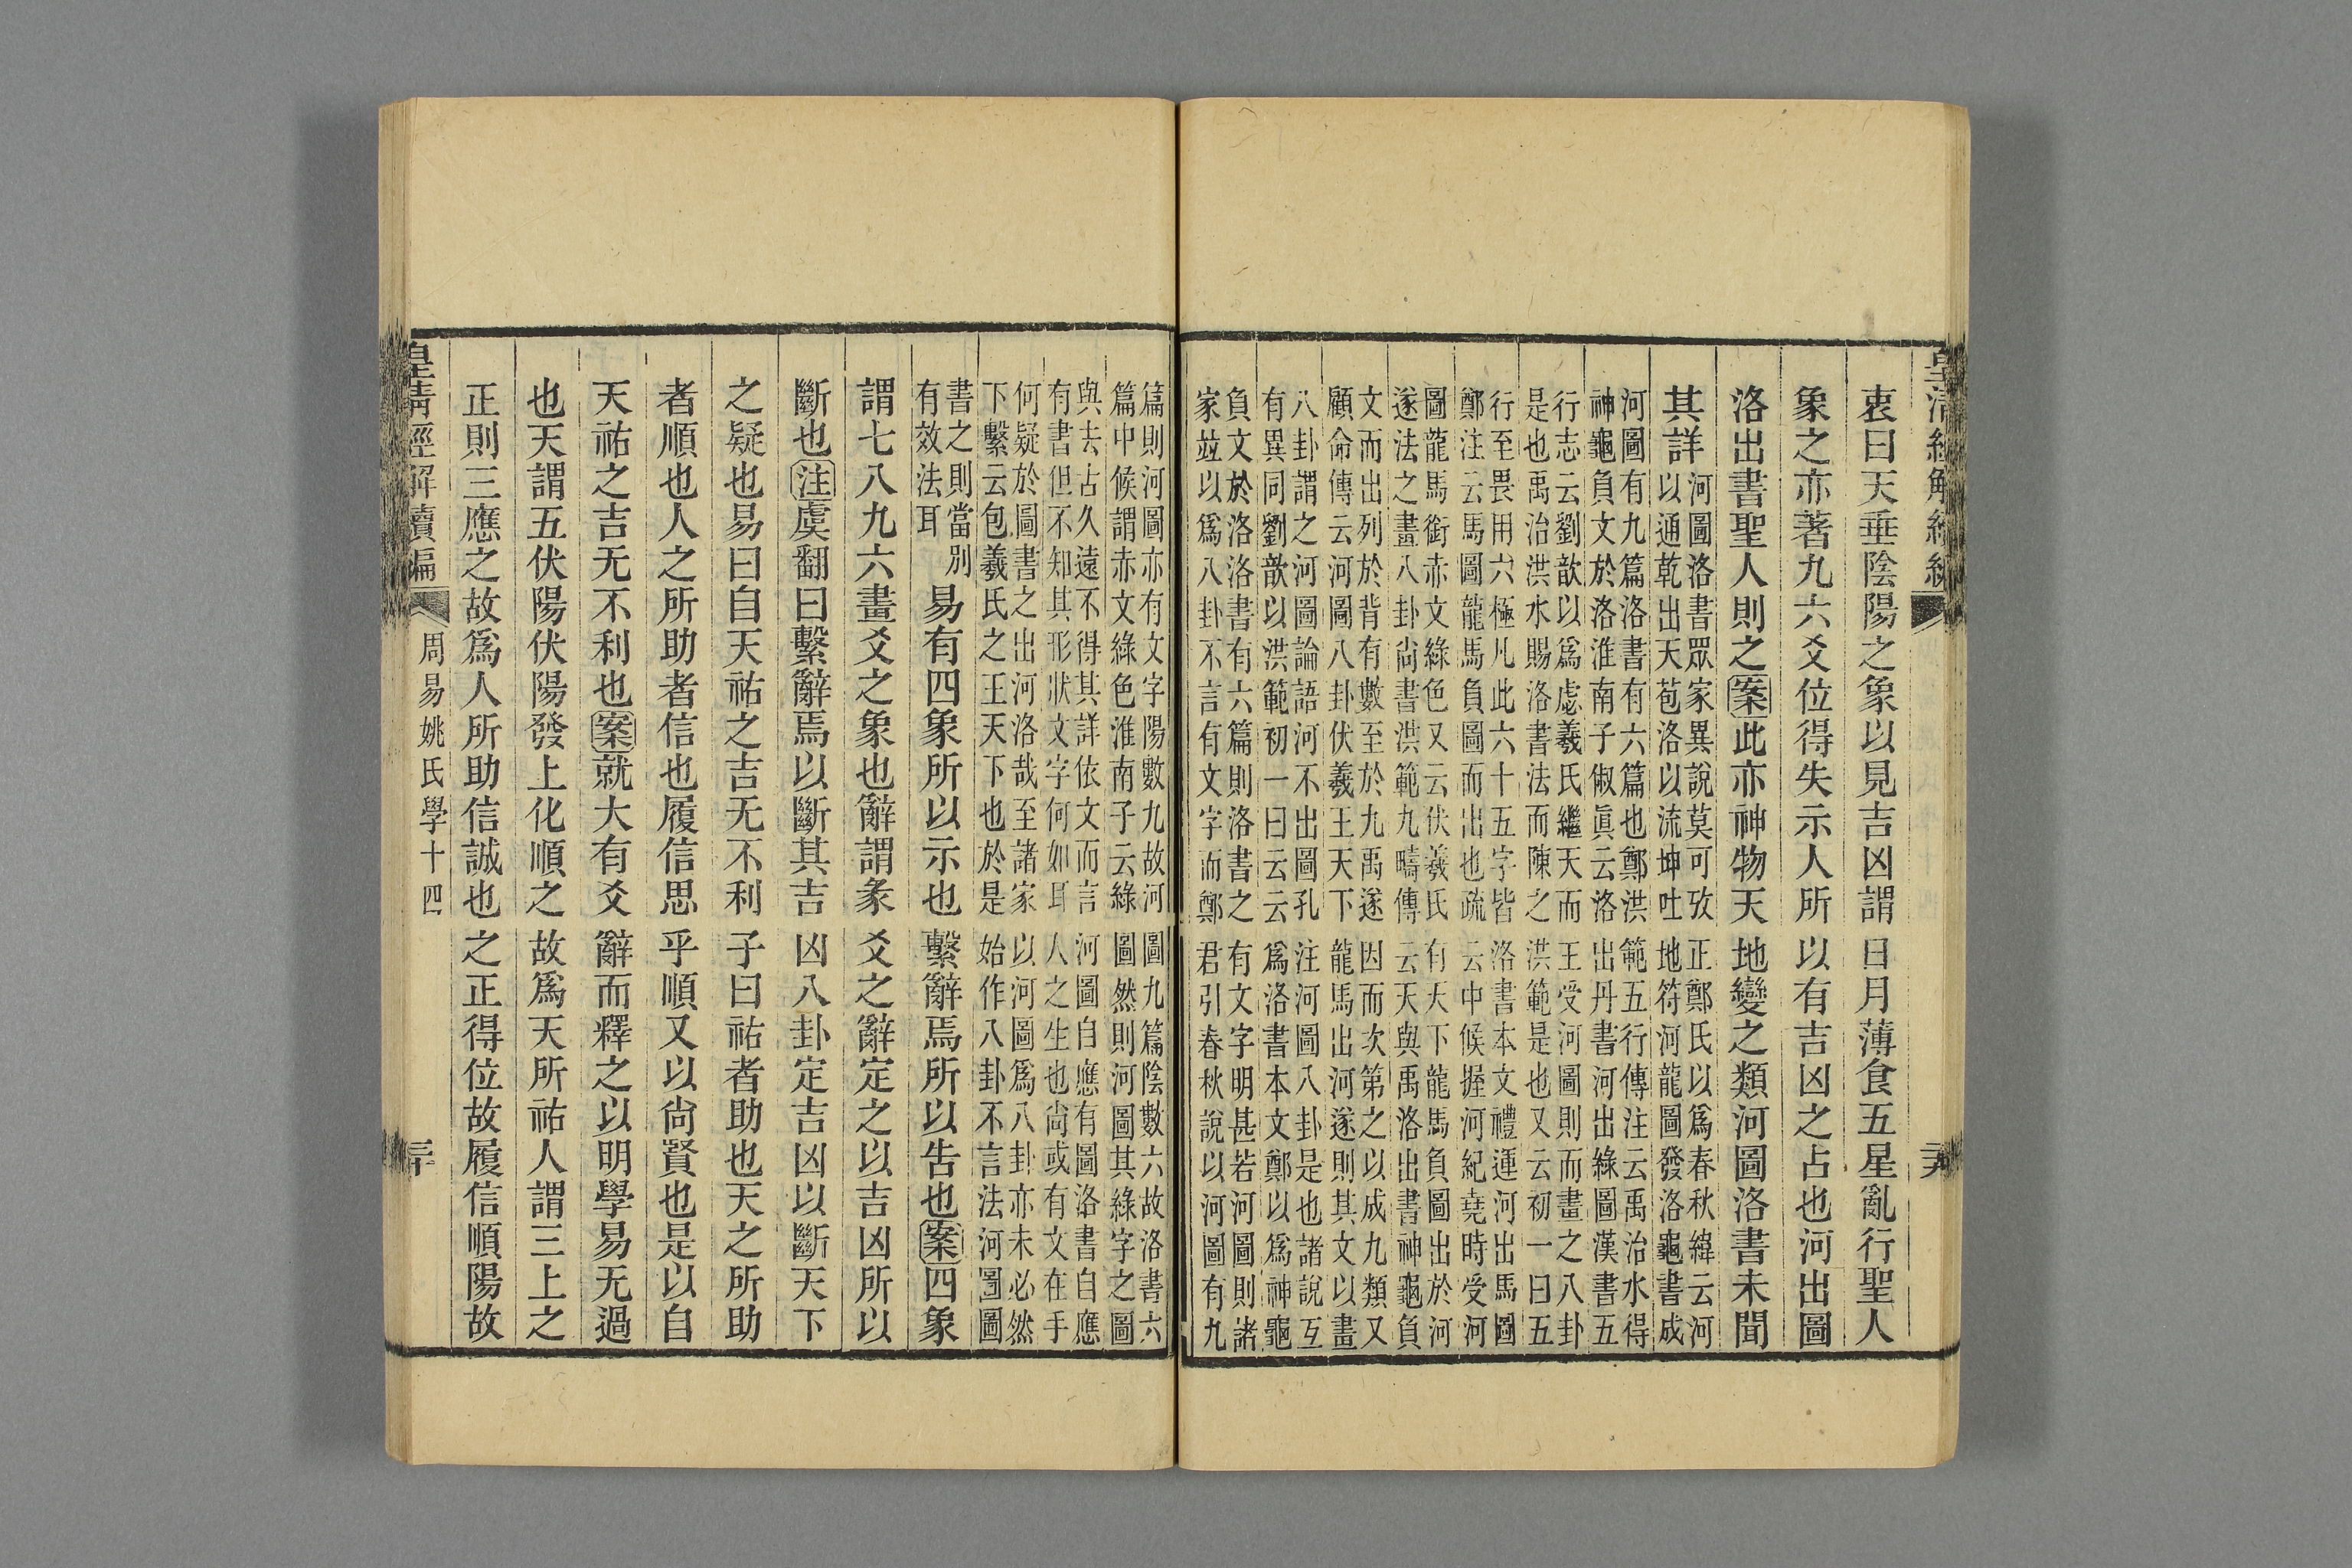 衷曰天垂陰陽之象以見吉凶謂日月薄食五星亂行聖人
象之亦著九六爻位得失示人所以有吉凶之占也河出圖
洛出書聖人則之案此亦神物天地變之類河圖洛書未聞
其詳
河圖洛書眾家異說莫可攷正鄭氏以爲春秋緯云河
以通乾出天苞洛以流坤吐地符河龍圖發洛龜書成
河圖有九篇洛書有六篇也鄭洪範五行傳注云禹治水得
神龜負文於洛淮南子俶眞云洛出丹書河出綠圖漢書五
行志云劉歆以爲虙羲氏繼天而王受河圖則而畫之八卦
是也禹治洪水賜洛書法而陳之洪範是也又云初一曰五
行至畏用六極凡此六十五字皆洛書本文禮運河出馬圖
鄭注云馬圖龍馬負圖而出也疏云中候握河紀堯時受河
圖龍馬銜赤文綠色又云伏羲氏有天下龍馬負圖出於河
遂法之畫八卦尙書洪範九疇傳云天與禹洛出書神龜負
文而出列於背有數至於九禹遂因而次第之以成九類又
顧命傳云河圖八卦伏羲王天下龍馬出河遂則其文以畫
八卦謂之河圖論語河不出圖孔注河圖八卦是也諸說互
有異同劉歆以洪範初一曰云云爲洛書本文鄭以爲神龜
負文於洛洛書有六篇則洛書之有文字明甚若河圖則諸
家竝以爲八卦不言有文字而鄭君引春秋說以河圖有九
篇則河圖亦有文字陽數九故河圖九篇陰數六故洛書六
篇中候謂赤文綠色淮南子云綠圖然則河圖其綠字之圖
與去古久遠不得其詳依文而言河圖自應有圖洛書自應
有書但不知其形狀文字何如耳人之生也尙或有文在手
何疑於圖書之出河洛哉至諸家以河圖爲八卦亦未必然
下繫云包羲氏之王天下也於是始作八卦不言法河圖圖
書之則當別
有效法耳
易有四象所以示也繫辭焉所以告也案四象
謂七八九六畫爻之象也辭謂彖爻之辭定之以吉凶所以
斷也注虞翻曰繫辭焉以斷其吉凶八卦定吉凶以斷天下
之疑也易曰自天祐之吉无不利子曰祐者助也天之所助
者順也人之所助者信也履信思乎順又以尙賢也是以自
天祐之吉无不利也案就大有爻辭而釋之以明學易无過
也天謂五伏陽伏陽發上化順之故爲天所祐人謂三上之
正則三應之故爲人所助信誠也之正得位故履信順陽故
皇清經解續編
周易姚氏學十四